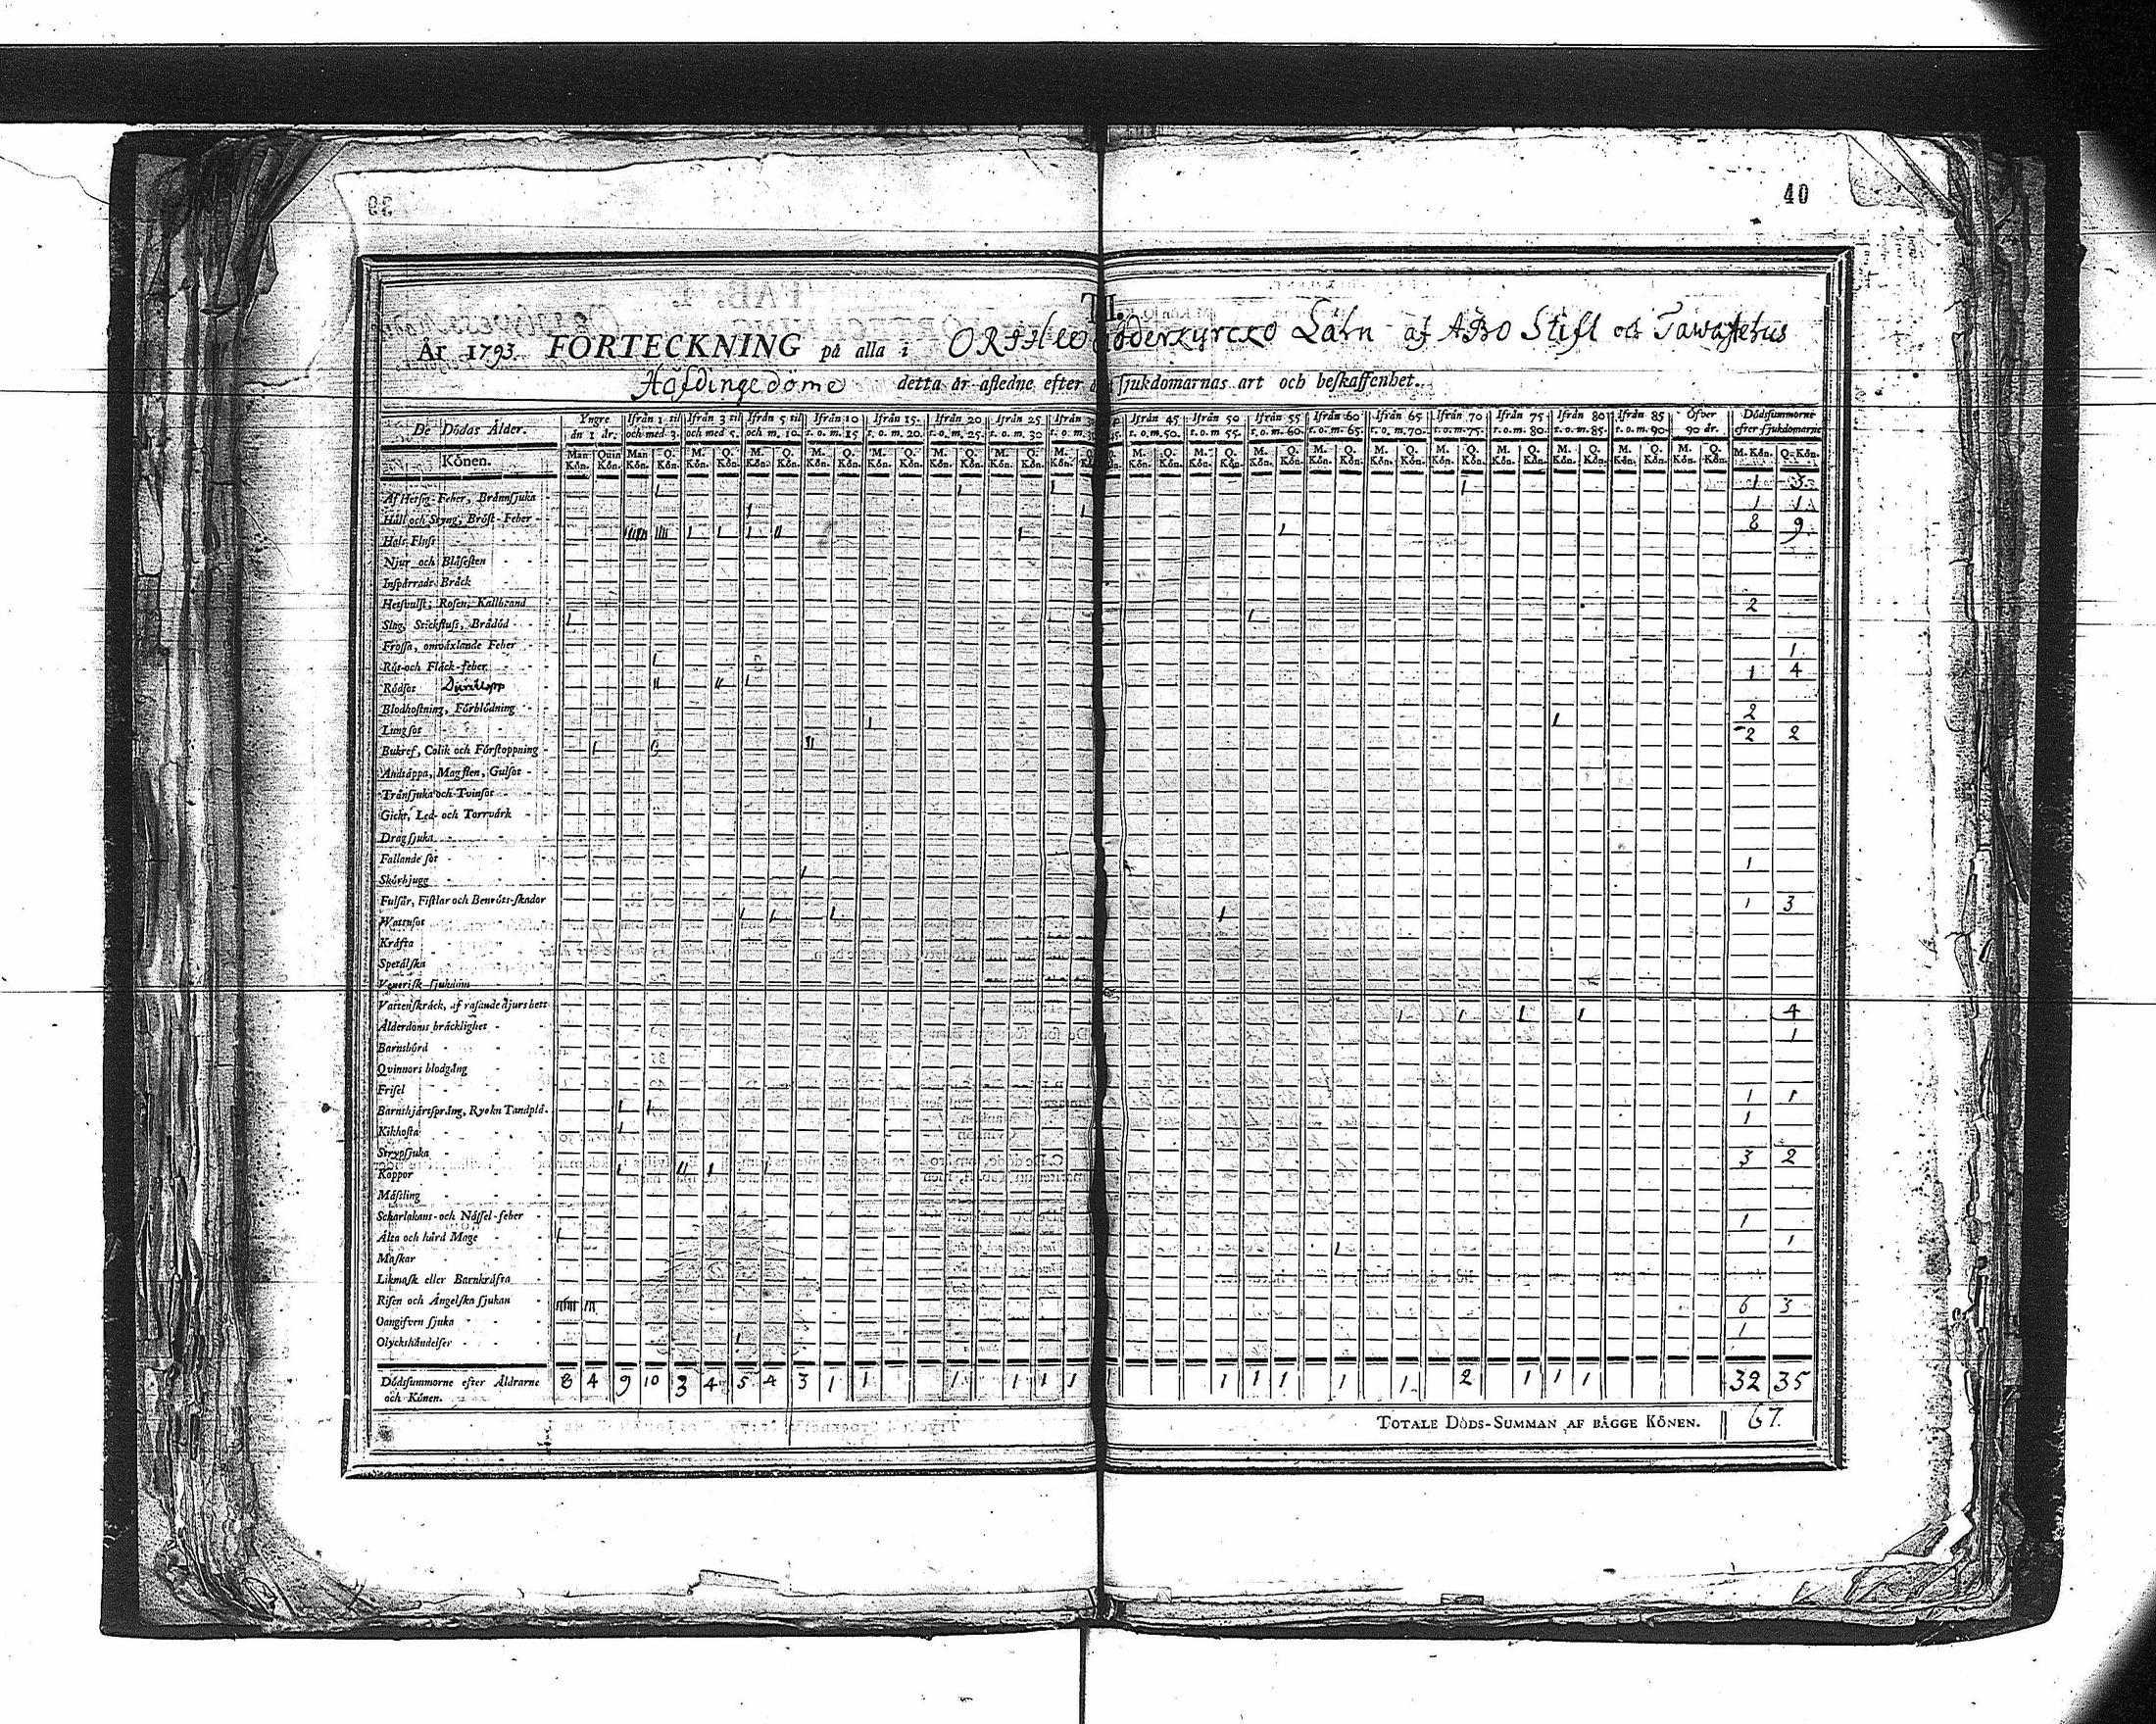 40
År 1793. FÖRTECKNING på alla i
Låhn af Åbo Stift och Tawastehus
Höfdingedöme detta år afledne efter sjukdomarnas art och beskaffenhet.
De Dödas Ålder. Yngre än 1 år. Ifrån 1 til och med 3. Ifrån 3 til och med 5. Ifrån 5 til och m. 10. Ifrån 10 t. o. m. 15 Ifrån 15. t. o. m. 20. Ifrån 20 t. o. m. 25. Ifrån 25 t. o. m. 30 Ifrån 45 t. o. m. 50. Ifrån 50 t. o. m 55. Ifrån 55 t. o. m. 60. Ifrån 60 t. o. m. 65. Ifrån 65 t. o. m. 70. Ifrån 70 t. o. m. 75. Ifrån 75 t. o. m. 80. Ifrån 80 t. o. m. 85. Ifrån 85 t. o. m. 90. Öfver 90 år. Dödsummorne efter sjukdomarne
Könen. Man Kön. Quin Kön. Man Kön. Q. Kön. M. Kön. Q. Kön. M. Kön. Q. Kön. M. Kön. Q. Kön. M. Kön. Q. Kön. M. Kön. Q. Kön. M. Kön. Q. Kön. M. Kön. M. Kön. Q. Kön. M. Kön. Q. Kön. M. Kön. Q. Kön. M. Kön. Q. Kön. M. Kön. Q. Kön. M. Kön. Q. Kön. M. Kön. Q. Kön. M. Kön. Q. Kön. M. Kön. Q. Kön. M. Kön. Q. Kön. M. Kön. Q. Kön.
Af Hetsig-Feber, Brännsjuka 1 3
Håll och Styng, Bröst-Feber 1 1
Hals-Fluss 8 9
Njur och Blåsesten
Inspärradt Bråck
Hetsvulst, Rosen, Kallbrand
Slag, Stickfluss, Brådöd 2
Frossa, omväxlande Feber
Röt-och Fläck-feber 1
Rödsot 1 4
Blodhostning, Förblödning
Lungsot 2
Bukref, Colik och Förstoppning 2 2
Andtäppa, Magsten, Gulsot
Trånsjuka och Tvinsot
Gickt, Led- och Torrvärk
Dragsjuka
Fallande sot
Skörbjugg 1
Fulsår, Fistlar och Benröts-skador
Wattusot 1 3
Kräfta
Spetälska
Venerisk-sjukdom
Vattenskräck, af rasande djurs bett
Ålderdoms bräcklighet 4
Barnsbörd 1
Qvinnors blodgång
Frisel
Barnshjärtsprång, Ryck Tandplå. 1 1
Kikhosta 1
Strypsjuka
Koppor 3 2
Mässling
Scharlakans-och Nässel-feber
Älta och hård Mage 1
Maskar 1
Likmask eller Barnkräfta
Risen och Ängelska sjukan
Oangifven sjuka 6 3
Olyckshändelser 1
Dödsummorne efter Åldrarne och Könen. 8 4 9 10 3 4 5 4 3 1 1 1 1 1 1 1 1 1 1 1 2 1 1 1 32 35
TOTALE DÖDS-SUMMAN AF BÄGGE KÖNEN. 67.